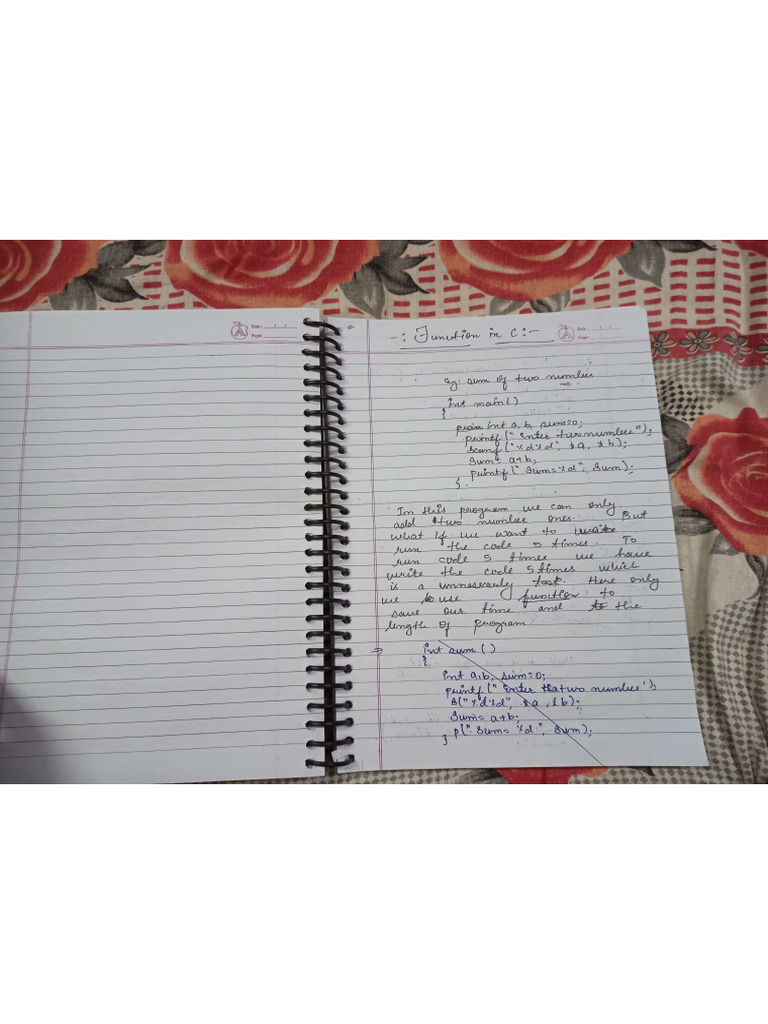 Date : / /
Page :
-: Function in C :-
Date : / /
Page :
Eg: sum of two number
int main()
{
int a, b, sum=0;
printf(" Enter two number");
scanf("%d%d", &a, &b);
Sum= a+b;
printf(" Sum=%d", Sum);
}.
In this program we can only
add two number ones. But
what if we want to write
run the code 5 times. To
run code 5 times we have
write the code 5 times which
is a unnessecarly task. Here only
we to use function to
save our time and the
length of program.
⇒ int sum ()
{
int a,b, sum=0;
printf(" Enter the two number");
S("%d%d", &a, &b);
Sum= a+b;
} p(" Sum= %d", Sum);